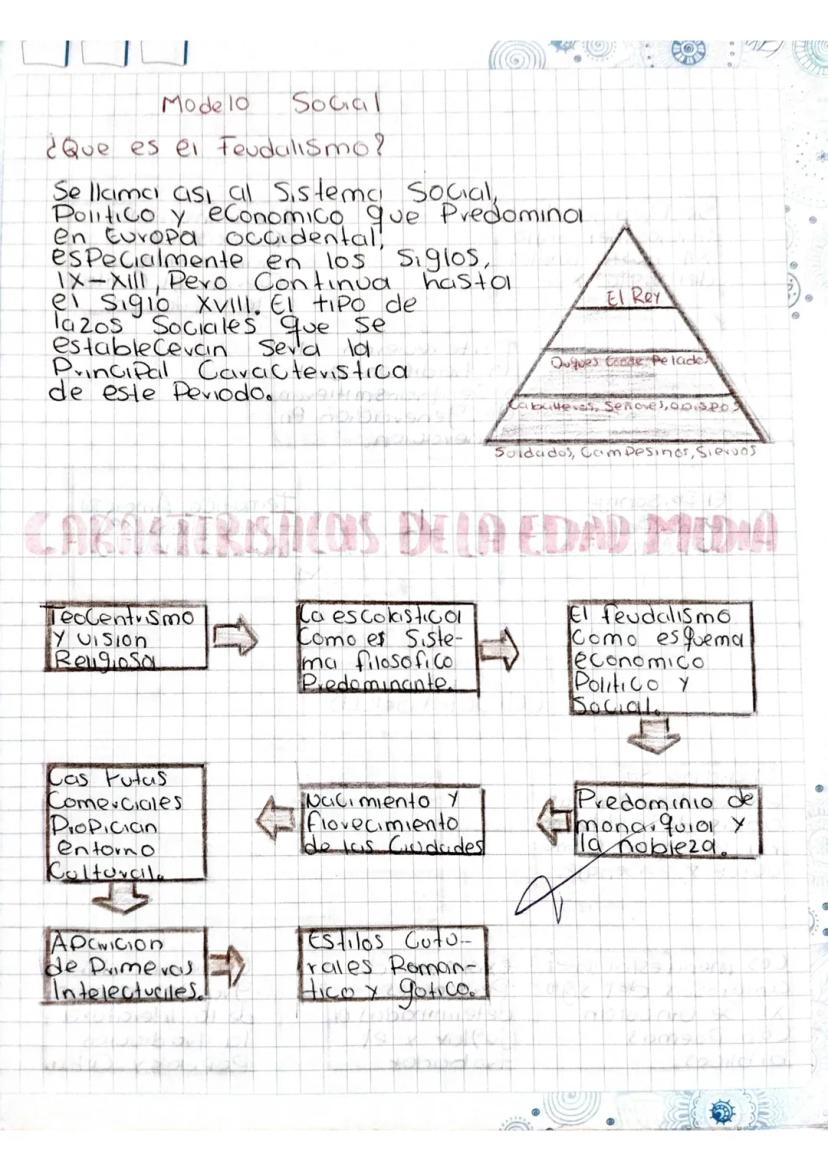 Modelo Social
¿Que es el Feudalismo?
Se llama asi al Sistema Social,
Politico y economico que Predomina
en Europa occidental,
especialmente en los Siglos,
IX-XIII, Pero Continua hasta
el Siglo XVIII. El tipo de
lazos Sociales que se
estableceran sera la
Principal Caracteristica
de este Periodo.
El Rey
Duques Conde Pelados
Caballeros, Señores, obispos
Soldados, Campesinos, Siervos
CARACTERISTICAS DE LA EDAD MEDIA
Teocentrismo
y vision
Religiosa
La escolastica
Como es Siste-
ma filosofico
Predominante.
El feudalismo
Como esquema
economico
Politico y
Social.
Predominio de
monarquia y
la nobleza.
Nacimiento y
florecimiento
de las Ciudades
Las Rutas
Comerciales
Propician
entorno
Cultural.
Aparicion
de Primeras
Intelectuales.
Estilos Cutu-
rales Roman-
tico y gotico.